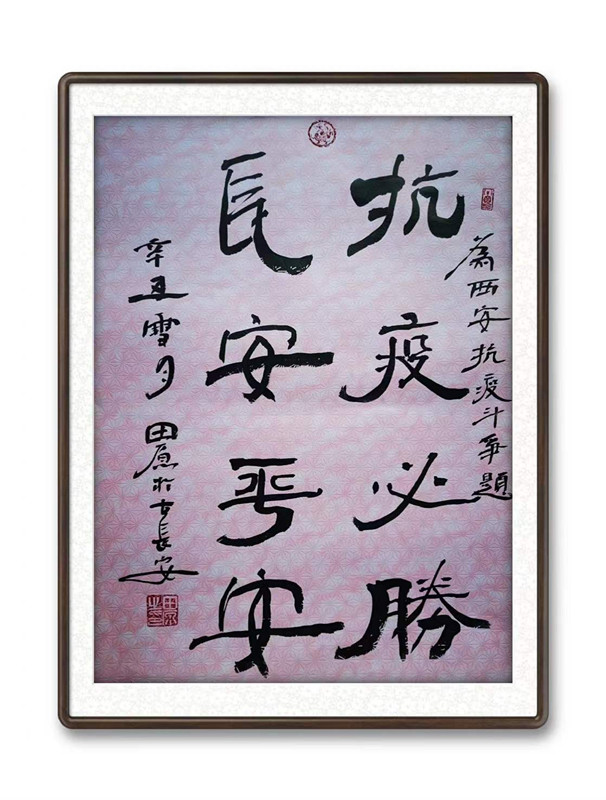 為西安抗疫斗爭題
抗疫必勝
長安平安
辛丑雪月田原於古長安